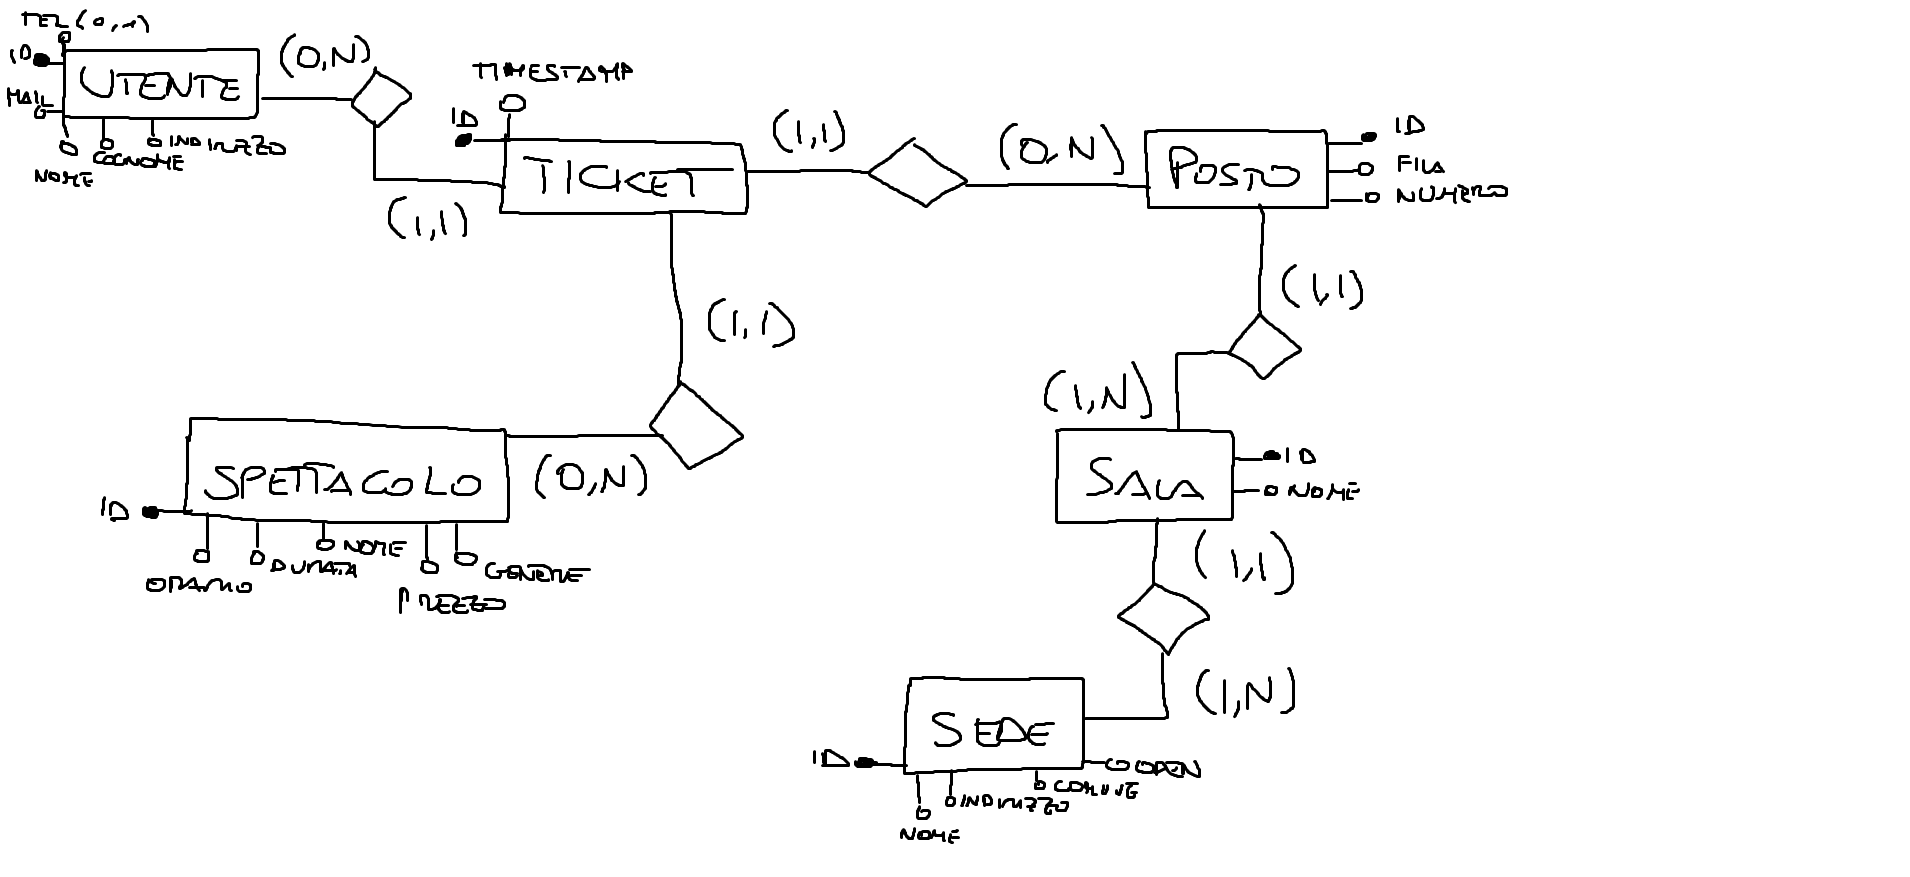 TEL (0,1)
ID
UTENTE
MAIL
NOME
COGNOME
INDIRIZZO
(0,N)
(1,1)
TIMESTAMP
ID
TICKET
(1,1)
(0,N)
POSTO
ID
FILA
NUMERO
(1,1)
(1,1)
(1,N)
SPETTACOLO
(0,N)
ID
ORARIO
DURATA
NOME
PREZZO
GENERE
SALA
ID
NOME
(1,1)
(1,N)
SEDE
ID
NOME
INDIRIZZO
COMUNE
OPEN